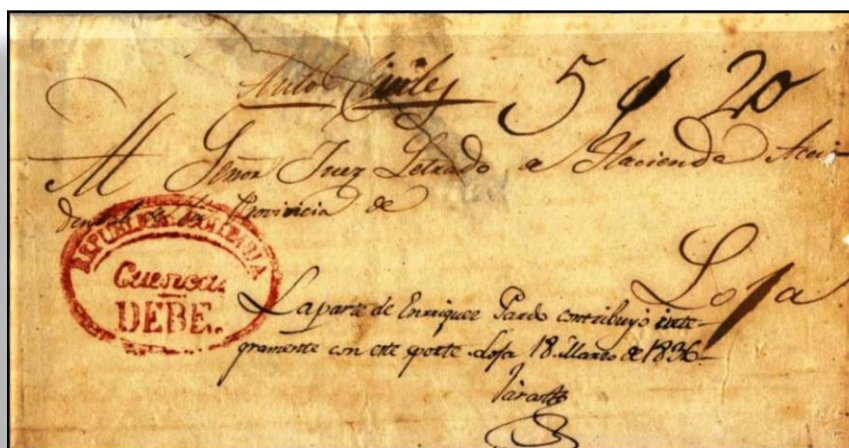 Autos Civiles 5 p 20
Al Señor Juez Letrado de Hacienda Acci-
dental de la Provincia de
Loja
REPUBLICA
Cuenca.
DEBE.
La parte de Enriquez Pardo contribuyó inte-
gramente con este porte Loja 18 Marzo de 1836